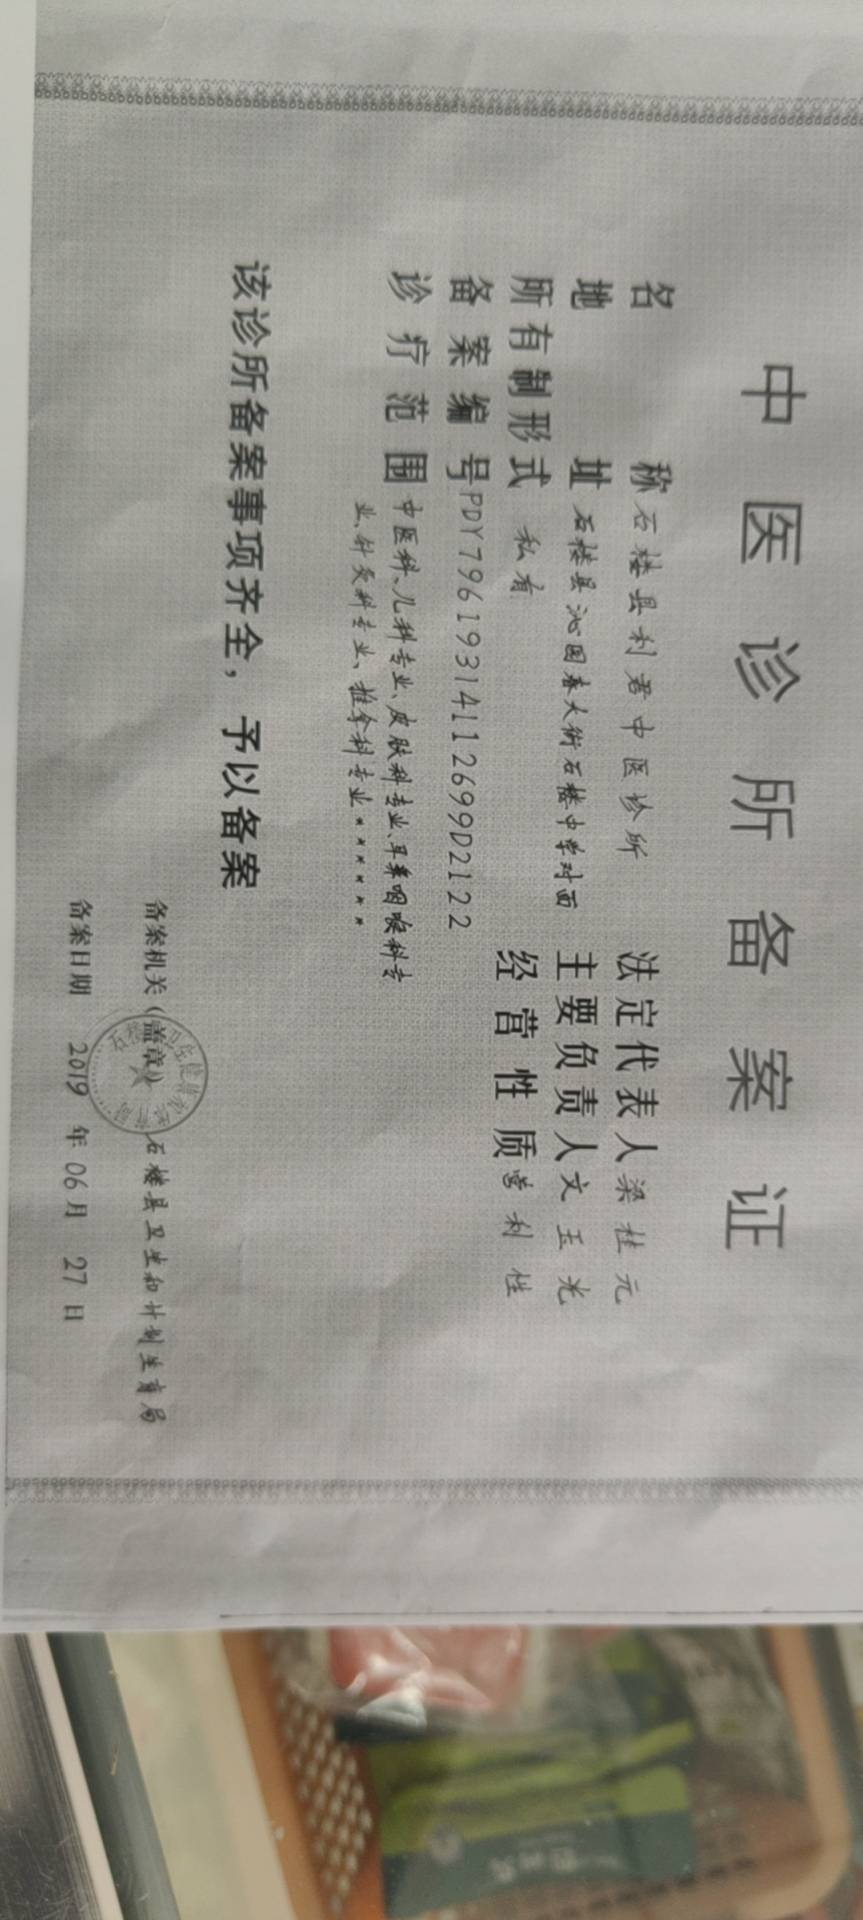 中医诊所备案证
名称 石楼县利君中医诊所 法定代表人 梁桂元
地址 石楼县沁园春大街石楼中学对面 主要负责人 文玉光
所有制形式 私有 经营性质 营利性
备案编号 PDY79619314112699D2122
诊疗范围 中医科、儿科专业、皮肤科专业、耳鼻咽喉科专
业、针灸科专业、推拿科专业******
该诊所备案事项齐全，予以备案
备案机关（盖章） 石楼县卫生和计划生育局
备案日期 2019 年 06 月 27 日